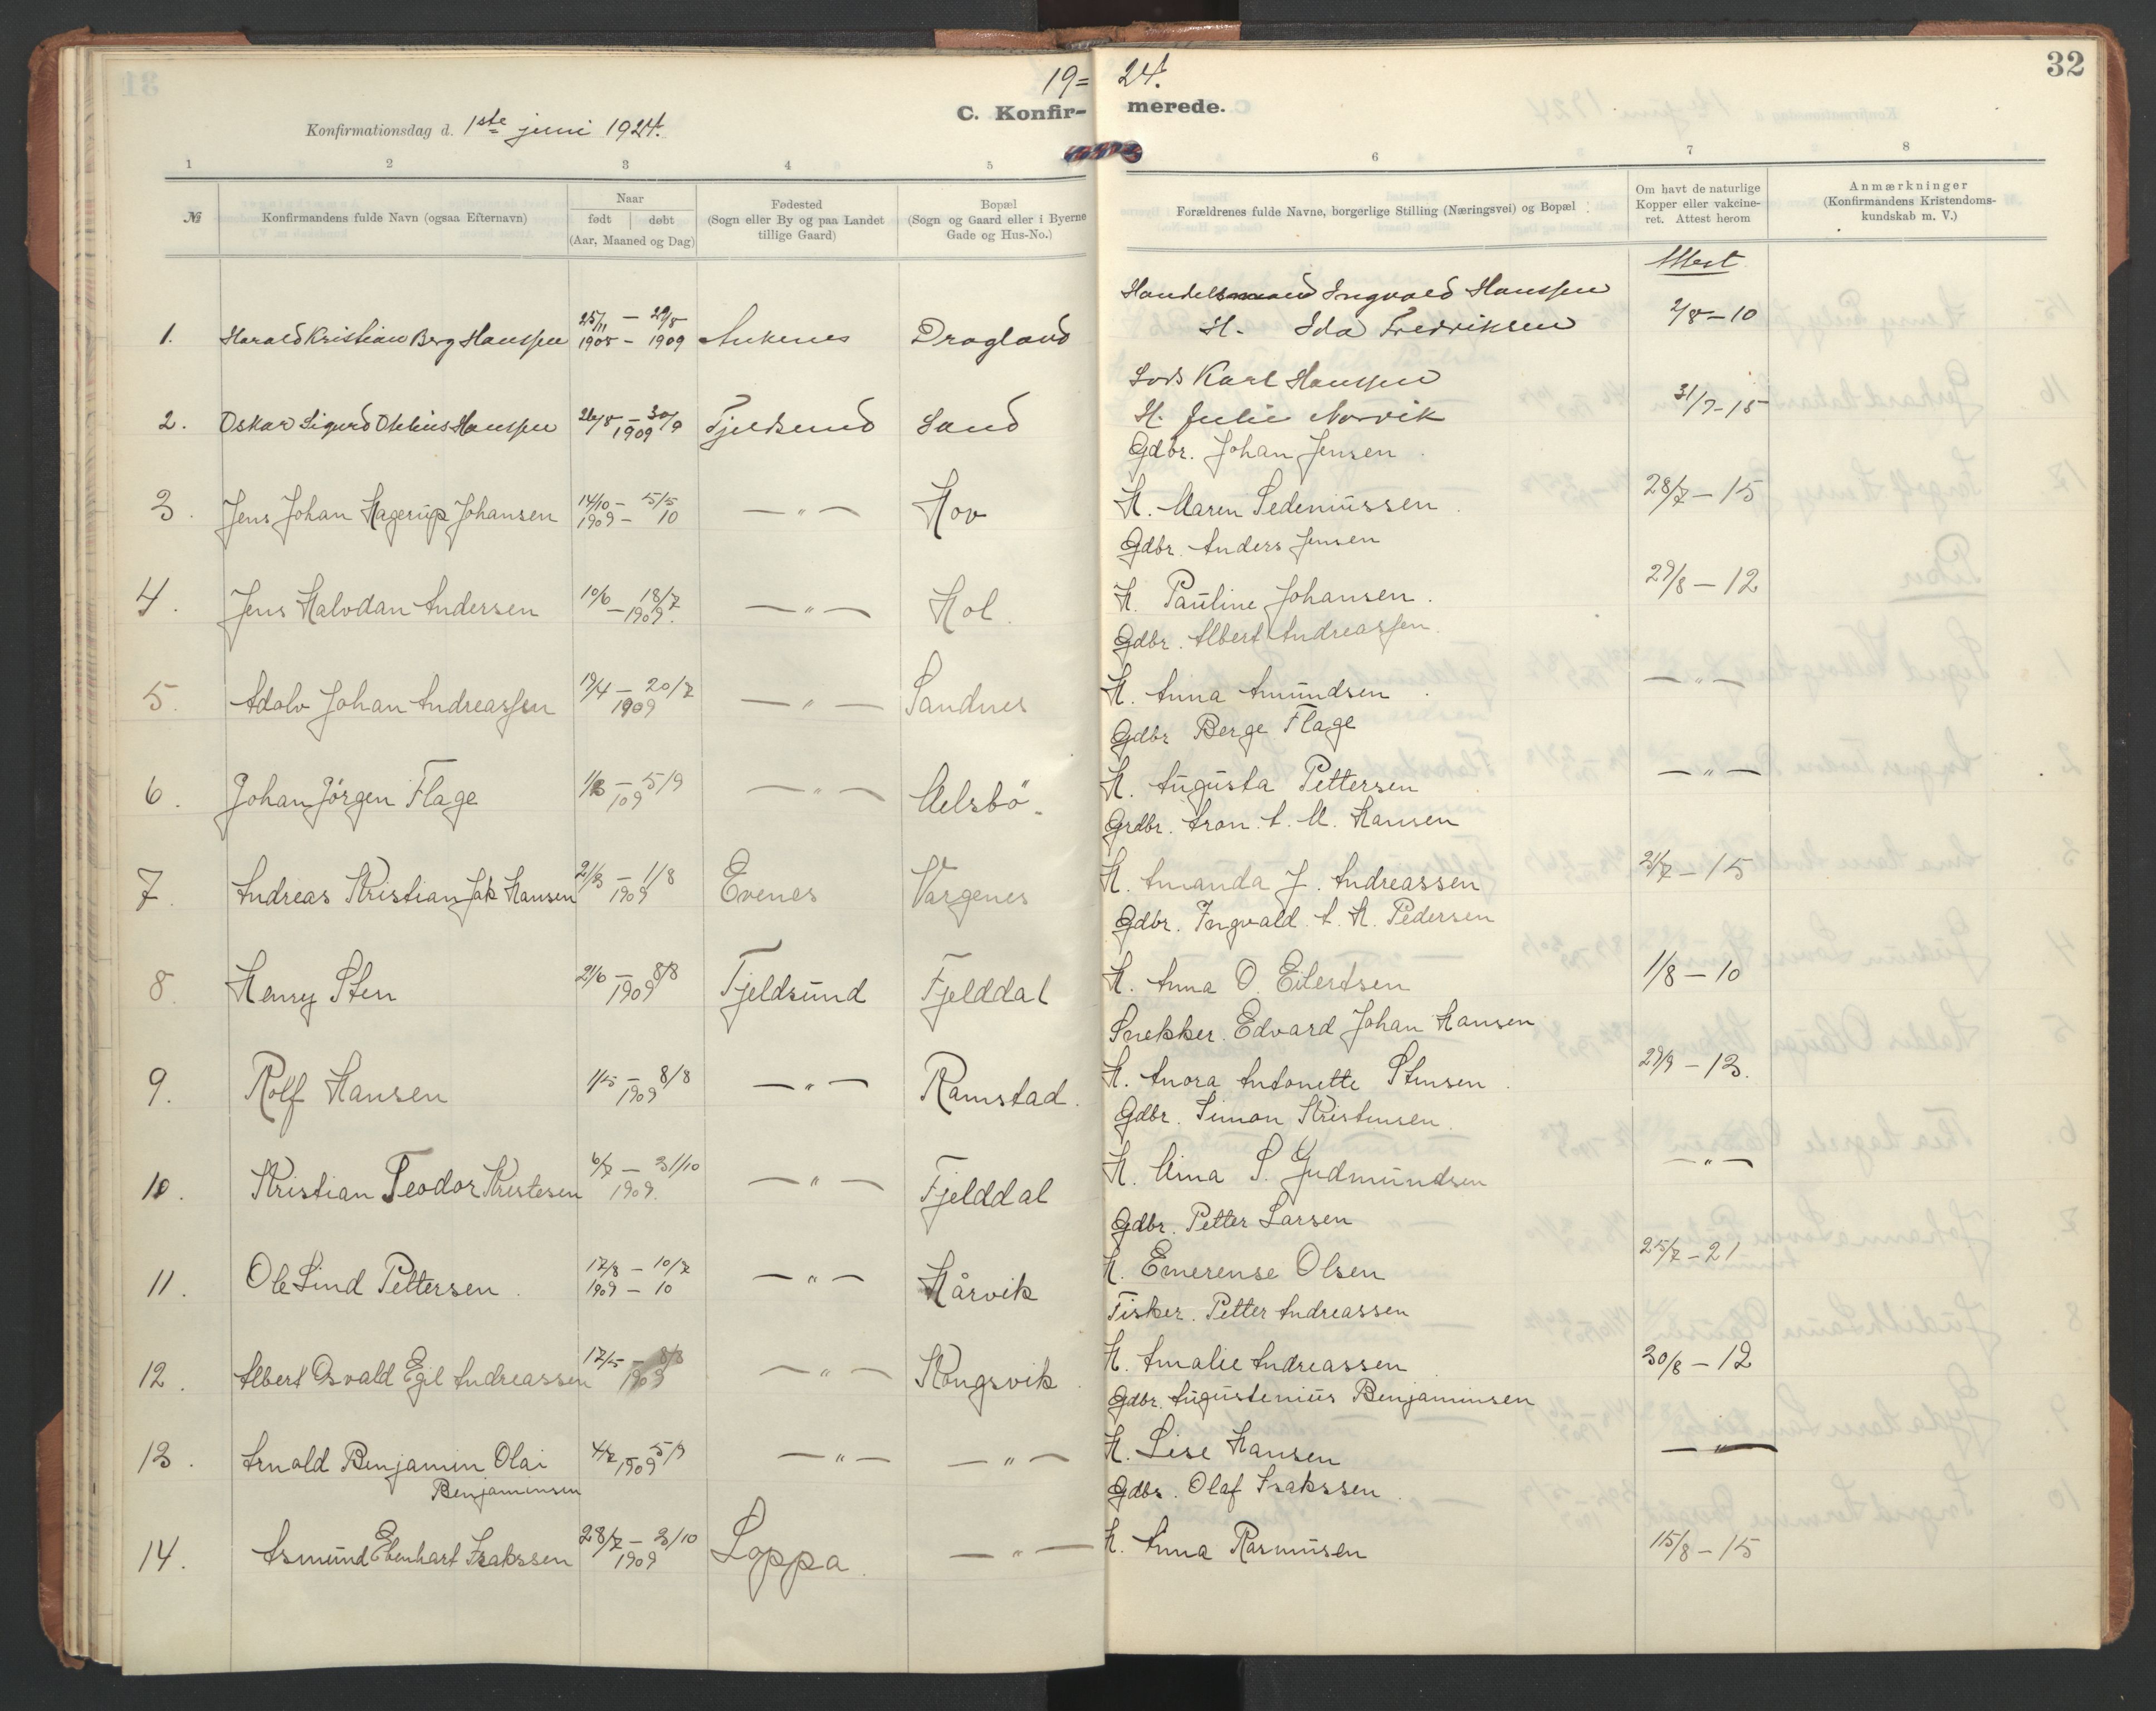 19= 24.
32
C. Konfir- merede.
Konfirmationsdag d. 1ste juni 1924.
1 2 3 4 5 6 7 8
№
Konfirmandens fulde Navn (ogsaa Efternavn)
Naar
født | døbt
(Aar, Maaned og Dag)
Fødested
(Sogn eller By og paa Landet
tillige Gaard)
Bopæl
(Sogn og Gaard eller i Byerne
Gade og Hus-No.)
Forældrenes fulde Navne, borgerlige Stilling (Næringsvei) og Bopæl
Om havt de naturlige
Kopper eller vakcine-
ret. Attest herom
Anmærkninger
(Konfirmandens Kristendoms-
kundskab m. V.)
Attest
Handelsmand Ingvald Hanssen
1. Harald Kristian Berg Hanssen 25/11 1908 - 29/8 1909 Ankenes Dragland H. Ida Fredriksen 2/8-10
Lods Karl Hanssen
2. Oskar Sigurd Othlius Hanssen 26/8 - 30/9 1909 Fjeldsund Sand H. Julie Norvik 31/7-15
Gdbr. Johan Jensen
3. Jens Johan Hagerup Johansen 14/10 - 5/5 1909 - 10 — " — Hov H. Maren Pedersen 28/7-15
Gdbr. Anders Jensen
4. Jens Halvdan Andersen 10/6 - 18/7 1909. — " — Hol. H. Pauline Johansen. 29/8-12
Gdbr. Albert Andreassen.
5. Adolv Johan Andreassen 19/4 - 20/7 1909 — " — Sandnes H. Anna Amundsen — " —
Gdbr Berge Flage
6. Johan Jörgen Flage 1/3 - 5/9 109 — " — H. Augusta Pettersen — " —
Grdbr. Aron. A. M. Hansen
7. Andreas Kristian Jak Hansen 21/3 - 1/8 1909 Evenes Vargenes H. Amanda J. Andreassen 31/7-15
Gdbr. Ingvald. A. H. Pedersen
8. Henry Sten 21/6 - 8/8 1909 Fjeldsund Fjelddal H. Anna O. Eilertsen 1/8-10
Snekker. Edvard Johan Hansen
9. Rolf Hansen 1/5 - 8/8 1909 — " — Ramstad. H. Anora Antonette Stensen 29/9-13.
Gdbr. Simon Kristensen.
10. Kristian Teodor Kristesen 6/7 - 31/10 1909. — " — Fjelddal H. Mina S. Gudmundsen — " —
Gdbr. Petter Larsen
11. Ole Lind Pettersen. 17/8 - 10/7 1909 - 10 — " — Hårvik H. Emerense Olsen 25/7-21
Fisker. Petter Andreassen
12. Albert Osvald Egil Andreassen 17/5 - 8/8 1909 — " — Kongsvik H. Amalie Andreassen 30/8-12
Gdbr. Augustenius Benjaminsen
13. Arnold Benjamin Olai Benjaminsen 4/7 - 5/9 1909 — " — — " — H. Lise Hansen — " —
Gdbr. Olaf Isakssen.
14. Asmund Ebenhart Isakssen 28/7 - 3/10 1909 Loppa. — " — H. Anna Rasmusen 15/8-15